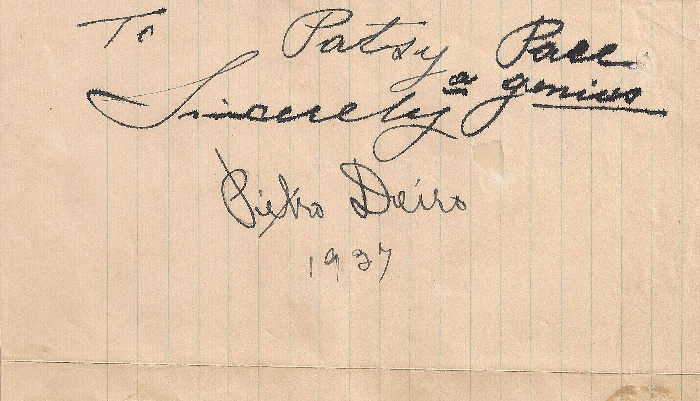 To Patsy Pace
a genius
Sincerely
Pietro Deiro
1937